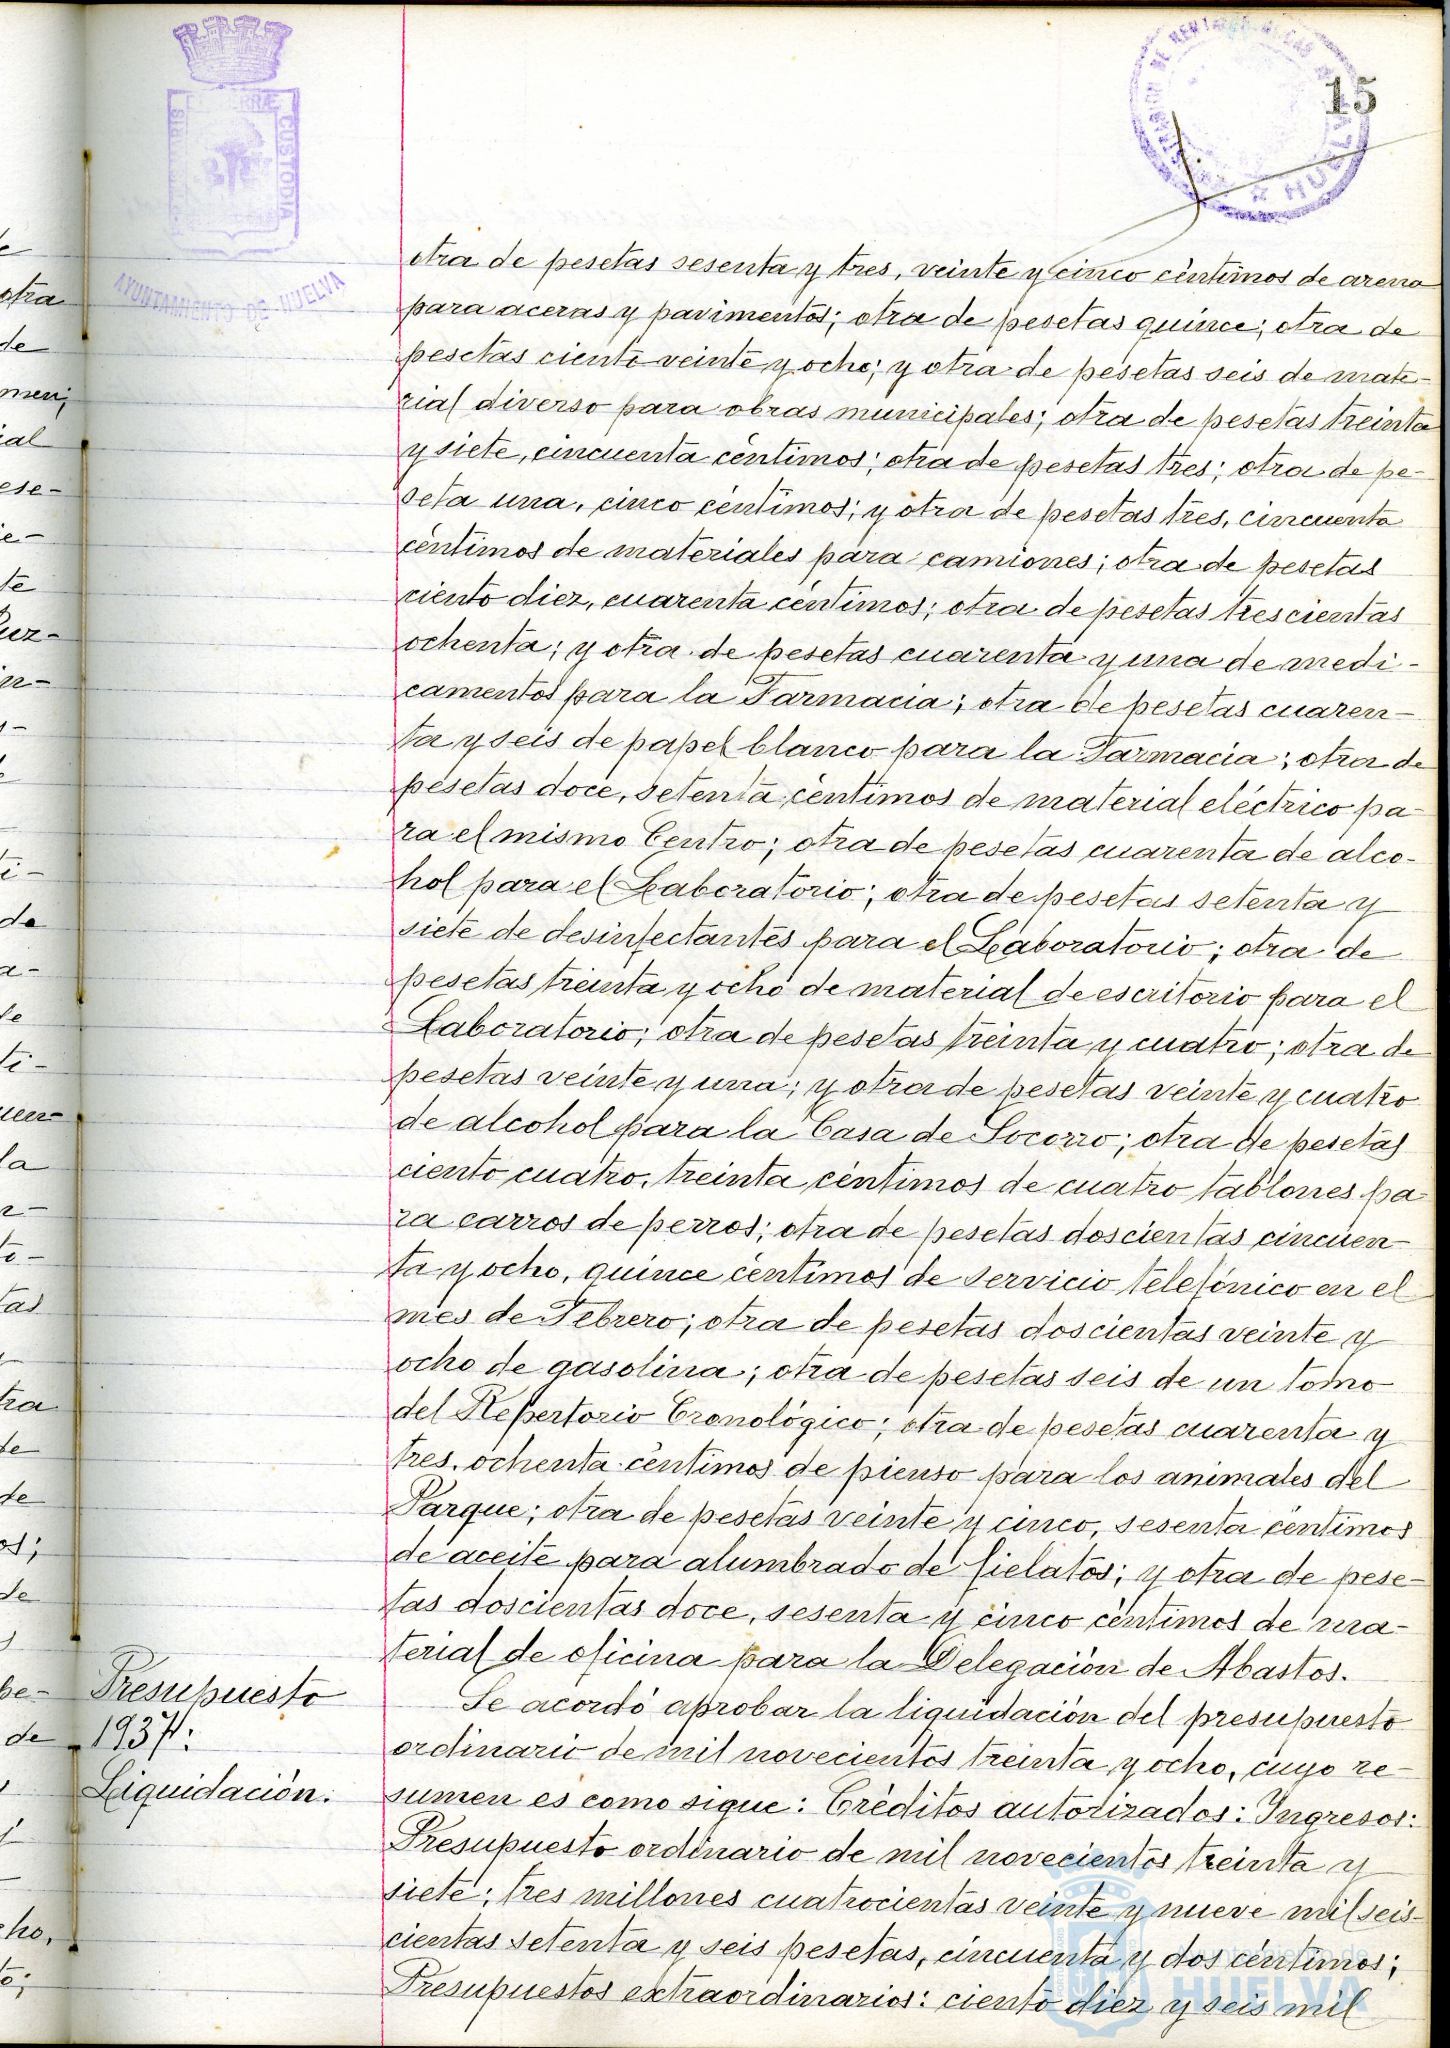 15
PORTUS MARIS ET TERRÆ CUSTODIA
AYUNTAMIENTO DE HUELVA
HUELVA
otra de pesetas sesenta y tres, veinte y cinco céntimos de arena
para aceras y pavimentos; otra de pesetas quince; otra de
pesetas ciento veinte y ocho; y otra de pesetas seis de mate-
rial diverso para obras municipales; otra de pesetas treinta
y siete, cincuenta céntimos; otra de pesetas tres; otra de pe-
seta una, cinco céntimos; y otra de pesetas tres, cincuenta
céntimos de materiales para camiones; otra de pesetas
ciento diez, cuarenta céntimos; otra de pesetas trescientas
ochenta; y otra de pesetas cuarenta y una de medi-
camentos para la Farmacia; otra de pesetas cuaren-
ta y seis de papel blanco para la Farmacia; otra de
pesetas doce, setenta céntimos de material eléctrico pa-
ra el mismo Centro; otra de pesetas cuarenta de alco-
hol para el Laboratorio; otra de pesetas setenta y
siete de desinfectantes para el Laboratorio; otra de
pesetas treinta y ocho de material de escritorio para el
Laboratorio; otra de pesetas treinta y cuatro; otra de
pesetas veinte y una; y otra de pesetas veinte y cuatro
de alcohol para la Casa de Socorro; otra de pesetas
ciento cuatro, treinta céntimos de cuatro tablones pa
ra carros de perros; otra de pesetas doscientas cincuen-
ta y ocho, quince céntimos de servicio telefónico en el
mes de Febrero; otra de pesetas doscientas veinte y
ocho de gasolina; otra de pesetas seis de un tomo
del Repertorio Cronológico; otra de pesetas cuarenta y
tres, ochenta céntimos de pienso para los animales del
Parque; otra de pesetas veinte y cinco, sesenta céntimos
de aceite para alumbrado de fielatos; y otra de pese-
tas doscientas doce, sesenta y cinco céntimos de ma-
terial de oficina para la Delegación de Abastos.
Presupuesto
1937:
Liquidación:
Se acordó aprobar la liquidación del presupuesto
ordinario de mil novecientos treinta y ocho, cuyo re-
sumen es como sigue: Créditos autorizados: Ingresos:
Presupuesto ordinario de mil novecientos treinta y
siete; tres millones cuatrocientas veinte y nueve mil seis-
cientas setenta y seis pesetas, cincuenta y dos céntimos;
Presupuestos extraordinarios: ciento diez y seis mil
Ayuntamiento de
HUELVA